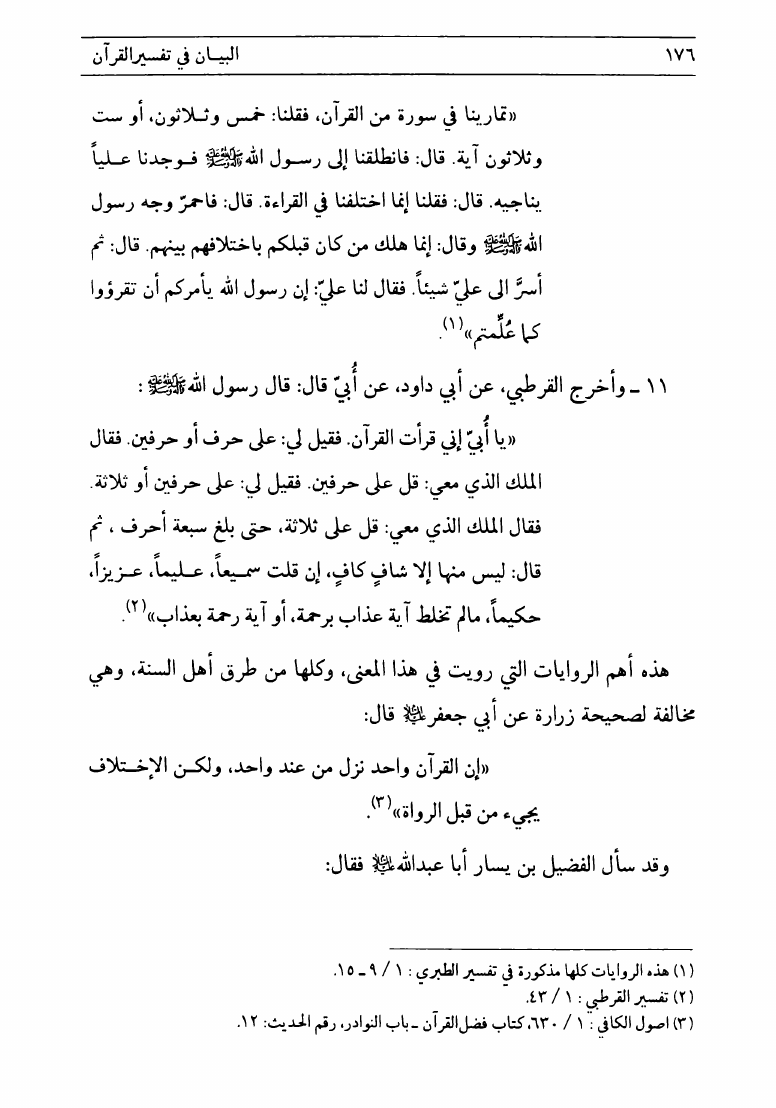 ١٧٦ البيـان في تفسيرالقرآن
«تمارينا في سورة من القرآن، فقلنا: خمس وثـلاثون، أو ست
وثلاثون آية. قال: فانطلقنا إلى رسـول الله ﷺ فـوجدنا عـلياً
يناجيه. قال: فقلنا إنما اختلفنا في القراءة. قال: فاحمرّ وجه رسول
الله ﷺ وقال: إنما هلك من كان قبلكم باختلافهم بينهم. قال: ثم
أسرَّ الى عليّ شيئاً. فقال لنا عليّ: إن رسول الله يأمركم أن تقرؤوا
كما عُلِّمتم»(١).
١١ ـ وأخرج القرطبي، عن أبي داود، عن أُبيّ قال: قال رسول الله ﷺ :
«يا أُبيّ إني قرأت القرآن. فقيل لي: على حرف أو حرفين. فقال
الملك الذي معي: قل على حرفين. فقيل لي: على حرفين أو ثلاثة.
فقال الملك الذي معي: قل على ثلاثة، حتى بلغ سبعة أحرف ، ثم
قال: ليس منها إلا شافٍ كافٍ، إن قلت سمـيعاً، عـليماً، عـزيزاً،
حكيماً، مالم تخلط آية عذاب برحمة، أو آية رحمة بعذاب»(٢).
هذه أهم الروايات التي رويت في هذا المعنى، وكلها من طرق أهل السنة، وهي
مخالفة لصحيحة زرارة عن أبي جعفر عليه السلام قال:
«إن القرآن واحد نزل من عند واحد، ولكـن الإخـتلاف
يجيء من قبل الرواة»(٣).
وقد سأل الفضيل بن يسار أبا عبدالله عليه السلام فقال:
(١) هذه الروايات كلها مذكورة في تفسير الطبري : ١ / ٩ ـ ١٥.
(٢) تفسير القرطبي : ١ / ٤٣.
(٣) اصول الكافي : ١ / ٦٣٠، كتاب فضل القرآن ـ باب النوادر، رقم الحديث: ١٢.